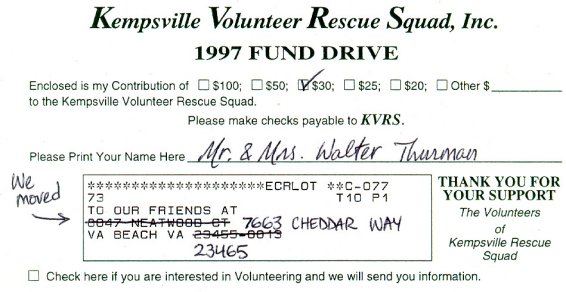 Kempsville Volunteer Rescue Squad, Inc.
1997 FUND DRIVE
Enclosed is my Contribution of ☐ $100; ☐ $50; ☑ $30; ☐ $25; ☐ $20; ☐ Other $
to the Kempsville Volunteer Rescue Squad.
Please make checks payable to KVRS.
Please Print Your Name Here Mr. & Mrs. Walter Thurman
We
moved
******************ECRLOT **C-077
73 T10 P1
TO OUR FRIENDS AT
8047 NEATWOOD CT 7663 CHEDDAR WAY
VA BEACH VA 23455-0013
23465
THANK YOU FOR
YOUR SUPPORT
The Volunteers
of
Kempsville Rescue
Squad
☐ Check here if you are interested in Volunteering and we will send you information.